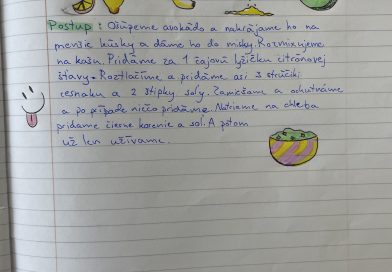 Postup: Ošúpeme avokádo a nakrájame ho na
menšie kúsky a dáme ho do misky. Rozmixujeme
na kašu. Pridáme za 1 čajovú lyžičku citrónovej
šťavy. Roztlačíme a pridáme asi 3 strúčiki
cesnaku a 2 štipky soly. Zamiešame a ochutnáme
a po prípade niečo pridáme. Natrieme na chleba
pridame čierne korenie a sol. A potom
už len užívame.